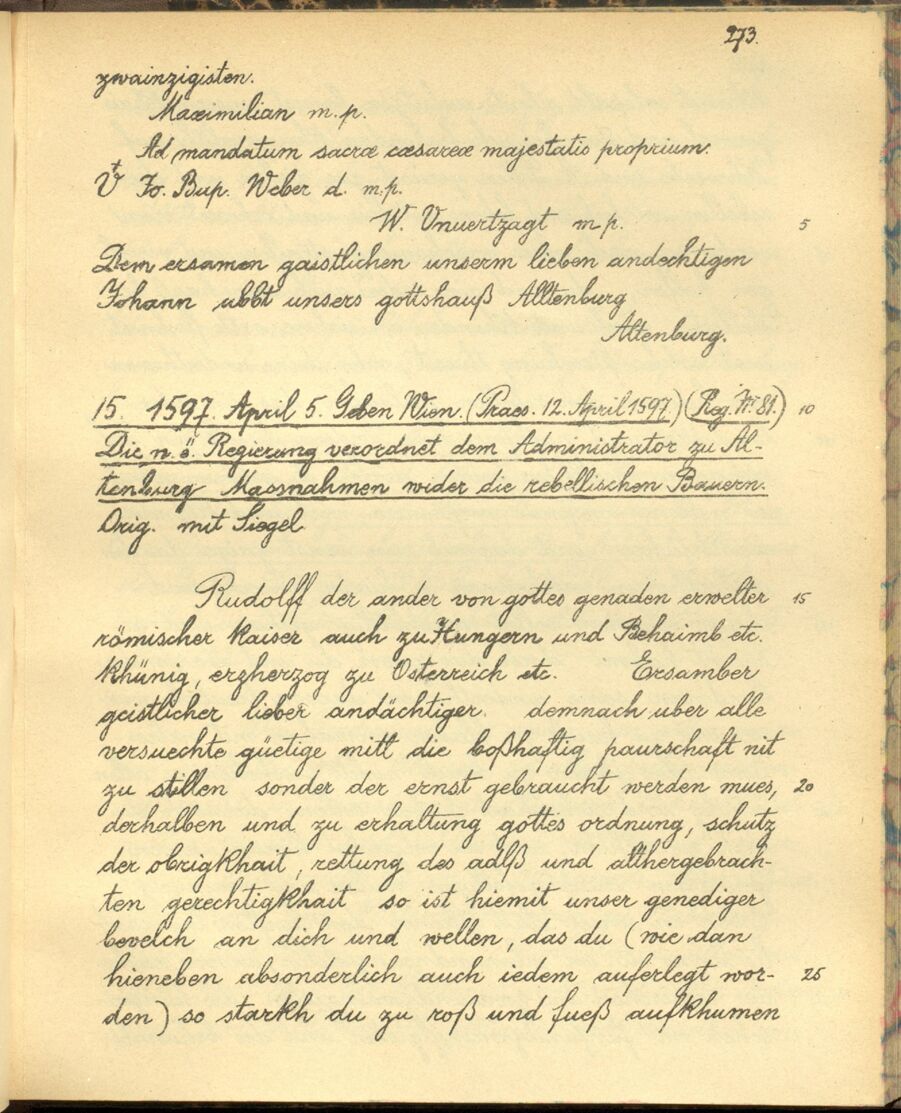 273.
zwainzigisten.
Maximilian m. p.
Ad mandatum sacræ cæsareæ majestatis proprium.
Jo. Bap. Weber d. m. p.
W. Vnuertzagt m p. 5
Dem ersamen gaistlichen unserm lieben andechtigen
Johann abbt unsers gottshauß Alltenburg
Altenburg.
15. 1597. April 5. Geben Wien. (Praes. 12. April 1597) (Reg. Nr. 81.) 10
Die n. ö. Regierung verordnet dem Administrator zu Al-
tenburg Massnahmen wider die rebellischen Bauern.
Orig. mit Siegel
Rudolff der ander von gottes genaden erwelter 15
römischer kaiser auch zu Hungern und Behaimb etc.
khünig, erzherzog zu Österreich etc. Ersamber
geistlicher lieber andächtiger. demnach uber alle
versuechte güetige mitl die boßhaftig paurschaft nit
zu stillen sonder der ernst gebraucht werden mues, 20
derhalben und zu erhaltung gottes ordnung, schutz
der obrigkhait, rettung des adlß und althergebrach-
ten gerechtigkhait so ist hiemit unser genediger
bevelch an dich und wellen, das du (wie dan
hieneben absonderlich auch iedem auferlegt wor- 25
den) so starkh du zu roß und fueß aufkhumen